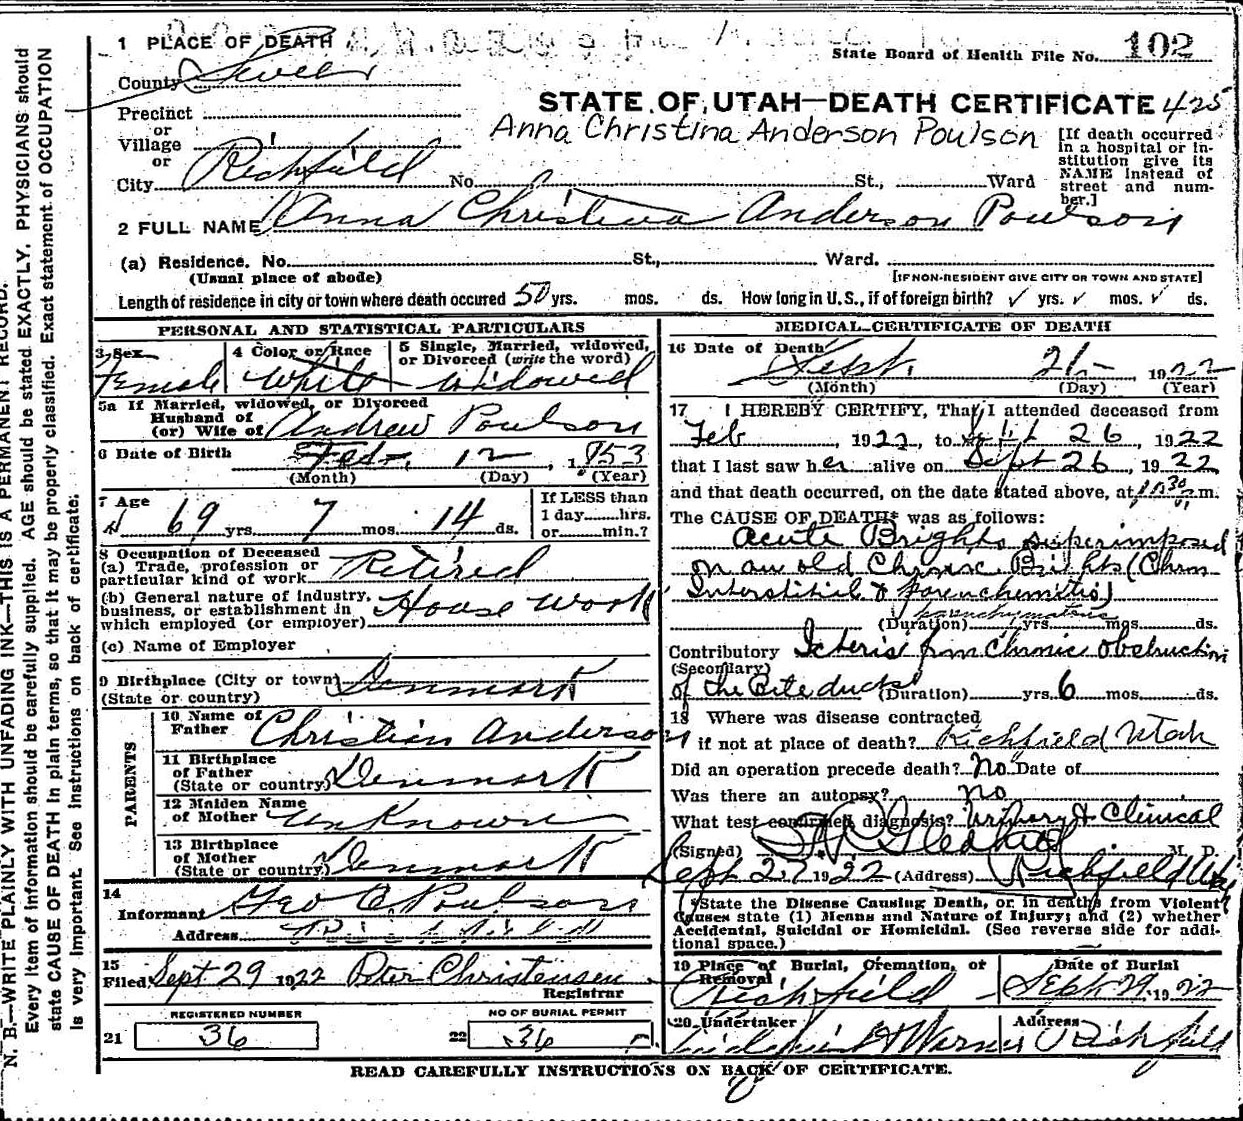 1 PLACE OF DEATH
State Board of Health File No. 102
County Sevier
STATE OF UTAH—DEATH CERTIFICATE 425
Precinct
or
Village
or
City Richfield No. St., Ward
Anna Christina Anderson Poulson
[If death occurred
in a hospital or in-
stitution give its
NAME instead of
street and num-
ber.]
2 FULL NAME Anna Christina Anderson Poulson
(a) Residence. No. St., Ward.
(Usual place of abode) [IF NON-RESIDENT GIVE CITY OR TOWN AND STATE]
Length of residence in city or town where death occured 50 yrs. mos. ds. How long in U. S., if of foreign birth? ✓ yrs. ✓ mos. ✓ ds.
PERSONAL AND STATISTICAL PARTICULARS
3 Sex
Female
4 Color or Race
White
5 Single, Married, widowed,
or Divorced (write the word)
Widowed
5a If Married, widowed, or Divorced
Husband of
(or) Wife of Andrew Poulson
6 Date of Birth Feb. 12, 1853
(Month) (Day) (Year)
7 Age
69 yrs. 7 mos. 14 ds.
If LESS than
1 day hrs.
or min.?
8 Occupation of Deceased
(a) Trade, profession or
particular kind of work Retired
(b) General nature of industry,
business, or establishment in
which employed (or employer) House Work
(c) Name of Employer
9 Birthplace (City or town) Denmark
(State or country)
PARENTS
10 Name of
Father Christien Anderson
11 Birthplace
of Father
(State or country) Denmark
12 Maiden Name
of Mother Unknown
13 Birthplace
of Mother
(State or country) Denmark
14
Informant Geo C Poulson
Address Richfield
15
Filed Sept 29 1922 Peter Christensen
Registrar
REGISTERED NUMBER
21 36
NO OF BURIAL PERMIT
22 36
MEDICAL CERTIFICATE OF DEATH
16 Date of Death Sept. 26, 1922
(Month) (Day) (Year)
17 I HEREBY CERTIFY, That I attended deceased from
Feb 1922, to Sept 26, 1922
that I last saw her alive on Sept 26, 1922
and that death occurred, on the date stated above, at m.
The CAUSE OF DEATH* was as follows:
Acute Brights superimposed
on an old Chronic Brights (Chrn
Interstitial & parenchemitis)
parenchymatous
(Duration) yrs. mos. ds.
Contributory Icteris from Chronic obstruction
(Secondary)
of the Bile ducts (Duration) yrs. 6 mos. ds.
18 Where was disease contracted
if not at place of death? Richfield Utah
Did an operation precede death? No Date of
Was there an autopsy? no
What test confirmed diagnosis? Urinary & Clinical
(Signed) Gledhill M. D.
Sept 27 1922 (Address) Richfield Utah
*State the Disease Causing Death, or in deaths from Violent
Causes state (1) Means and Nature of Injury; and (2) whether
Accidental, Suicidal or Homicidal. (See reverse side for addi-
tional space.)
19 Place of Burial, Cremation, or
Removal
Richfield
Date of Burial
Sept 29, 1922
20 Undertaker
Warner
Address
Richfield
READ CAREFULLY INSTRUCTIONS ON BACK OF CERTIFICATE.
N. B.—WRITE PLAINLY WITH UNFADING INK—THIS IS A PERMANENT RECORD.
Every item of information should be carefully supplied. AGE should be stated EXACTLY. PHYSICIANS should
state CAUSE OF DEATH in plain terms, so that it may be properly classified. Exact statement of OCCUPATION
is very important. See instructions on back of certificate.